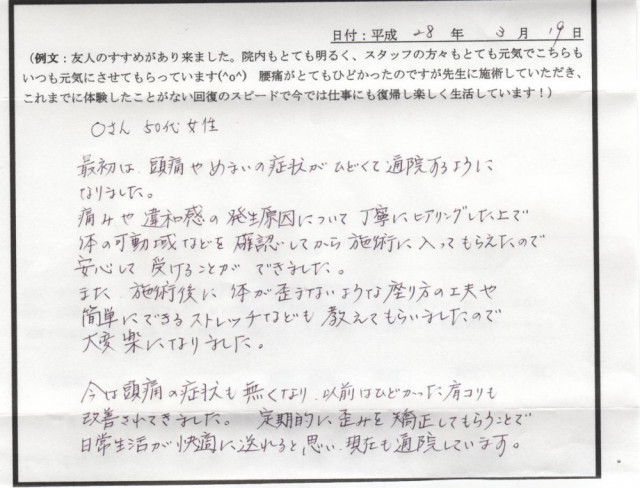 日付：平成 28 年 3 月 19 日
（例文：友人のすすめがあり来ました。院内もとても明るく、スタッフの方々もとても元気でこちらも
いつも元気にさせてもらっています(^o^)　腰痛がとてもひどかったのですが先生に施術していただき、
これまでに体験したことがない回復のスピードで今では仕事にも復帰し楽しく生活しています！）
Oさん 50代 女性
最初は、頭痛やめまいの症状がひどくて通院するように
なりました。
痛みや違和感の発生原因について丁寧にヒアリングした上で
体の可動域などを確認してから施術に入ってもらえたので
安心して受けることができました。
また 施術後に体が歪まないような座り方の工夫や
簡単にできるストレッチなども教えてもらいましたので
大変楽になりました。
今は頭痛の症状も無くなり、以前はひどかった肩コリも
改善されてきました。 定期的に歪みを矯正してもらうことで
日常生活が快適に送れると思い、現在も通院しています。